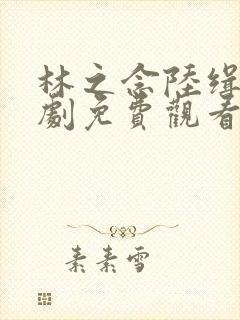 林之念陸緝
劇免費觀看
素素雪